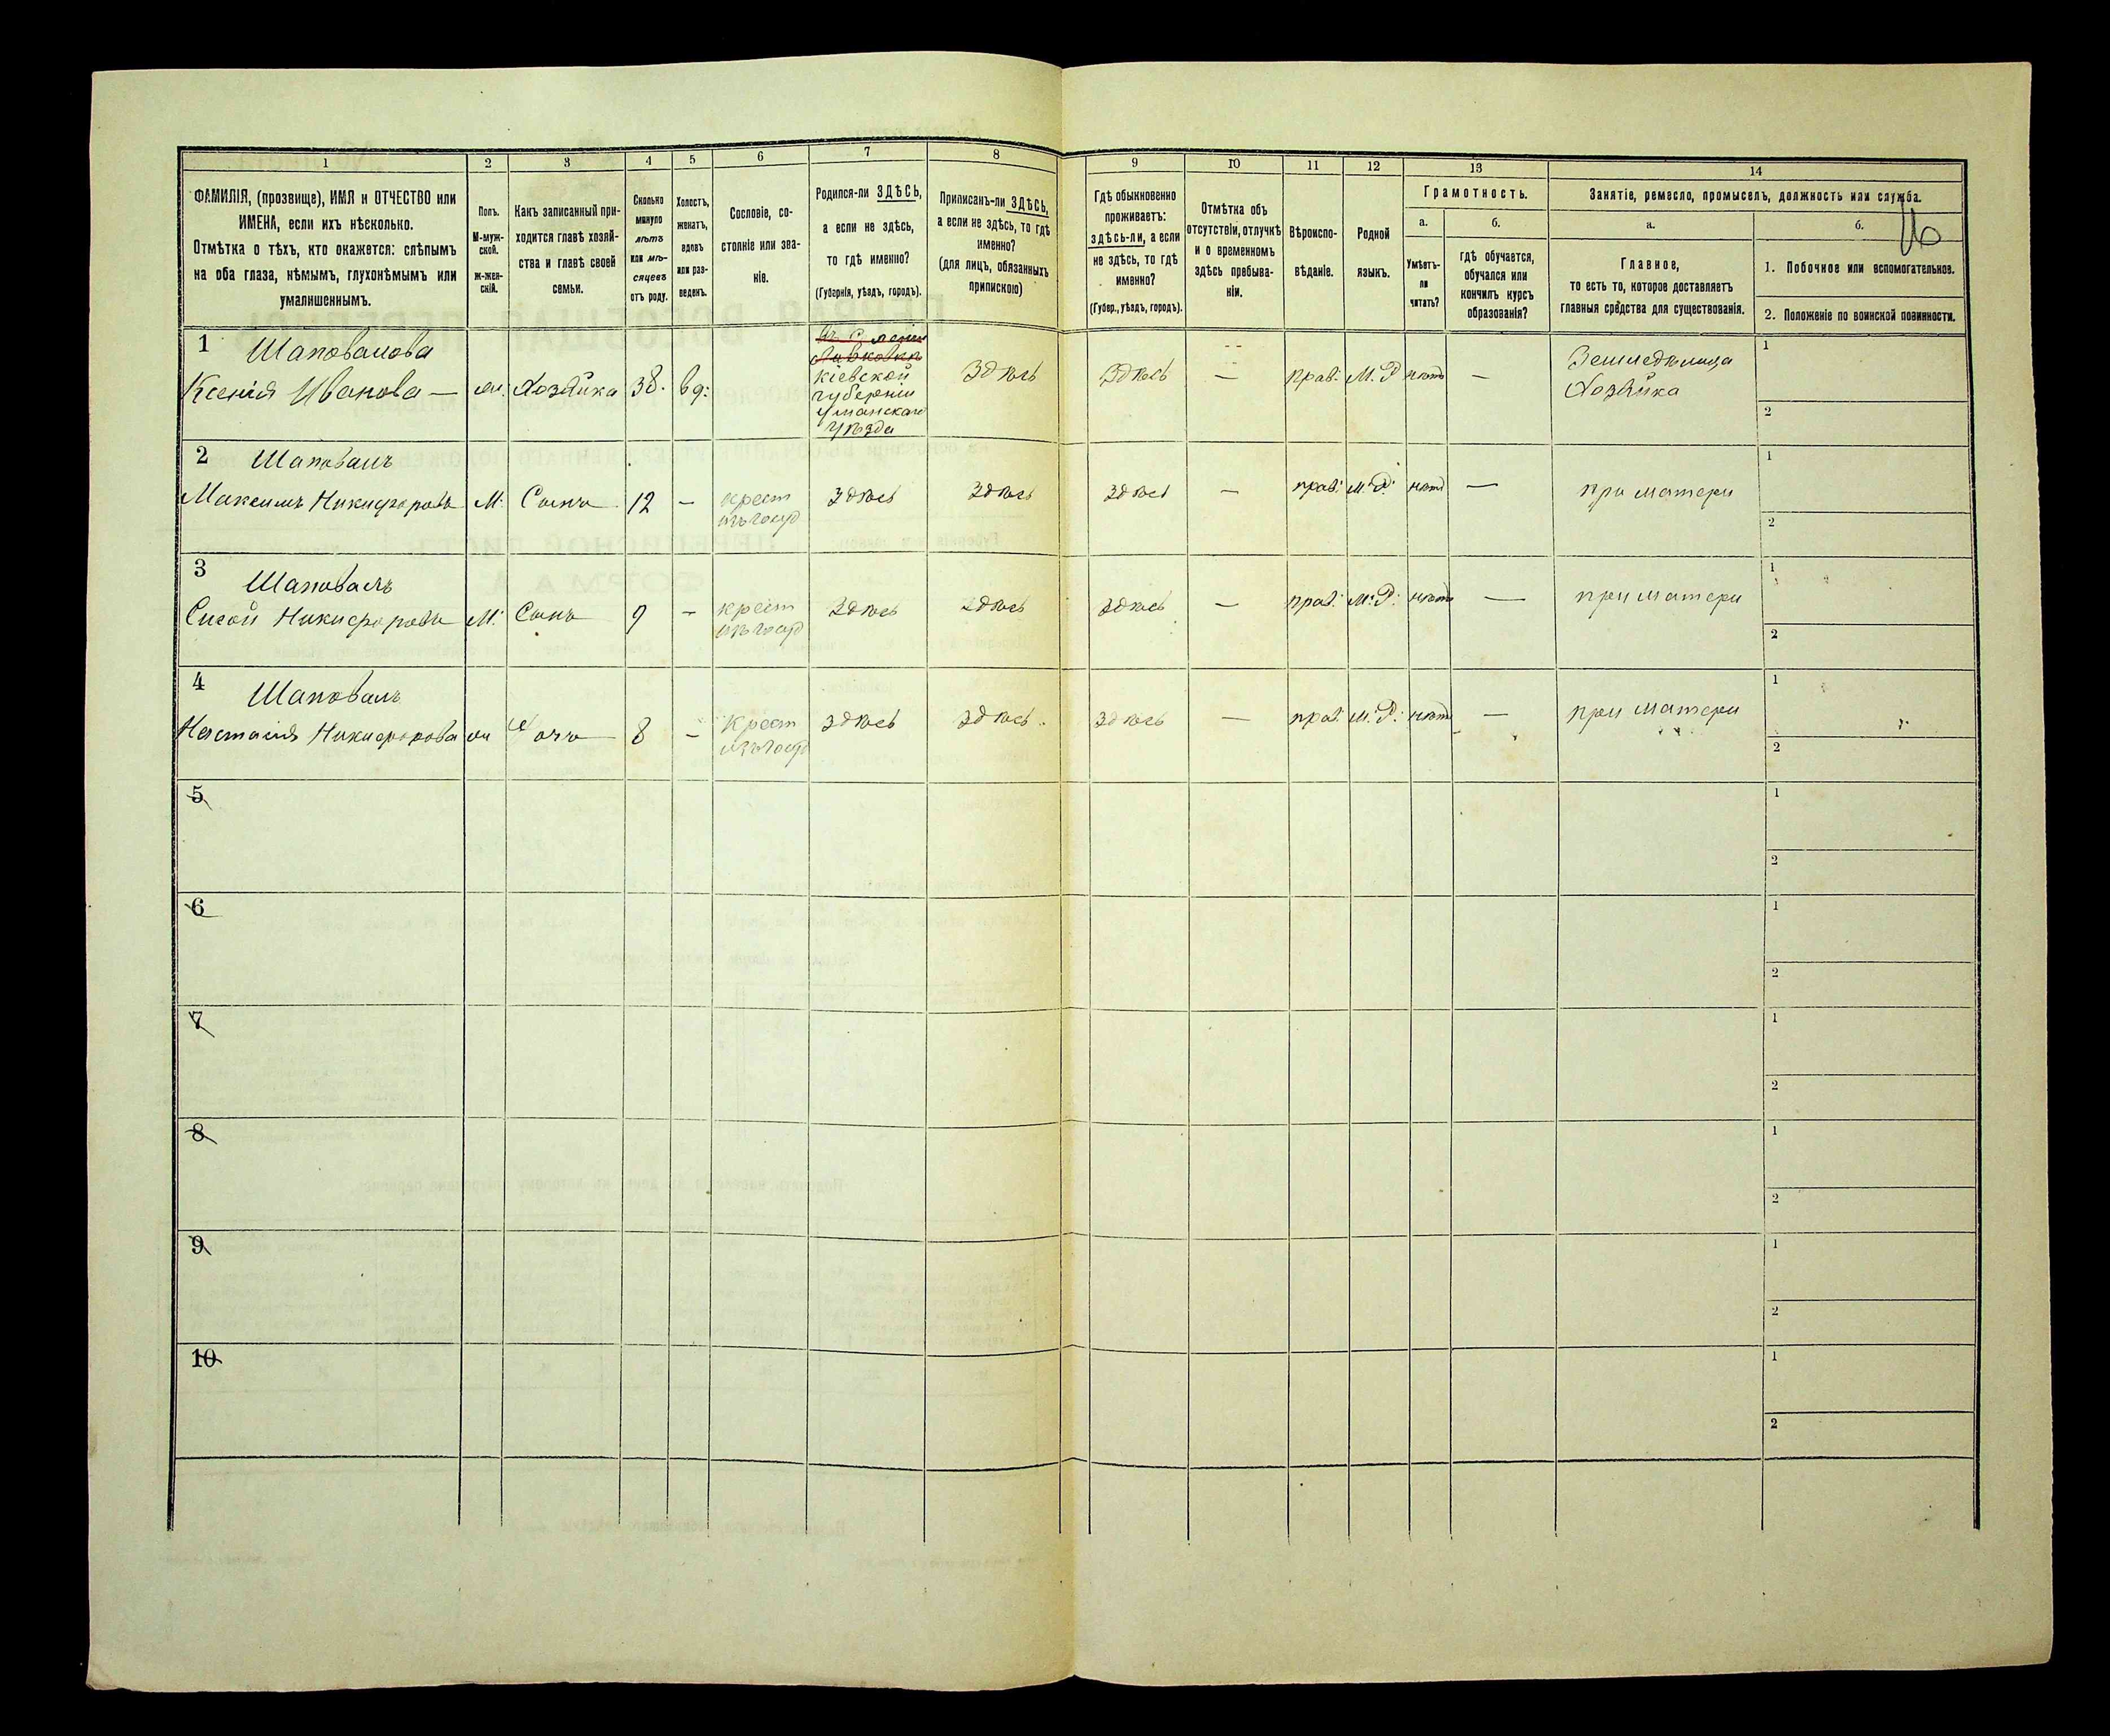 1 2 3 4 5 6 7 8 9 10 11 12 13 14
ФАМИЛІЯ, (прозвище), ИМЯ и ОТЧЕСТВО или
ИМЕНА, если ихъ нѣсколько.
Отмѣтка о тѣхъ, кто окажется: слѣпымъ
на оба глаза, нѣмымъ, глухонѣмымъ или
умалишеннымъ.
Полъ.
М-муж-
ской.
ж-жен-
скій.
Какъ записанный при-
ходится главѣ хозяй-
ства и главѣ своей
семьи.
Сколько
минуло
лѣтъ
или мѣ-
сяцевъ
отъ роду.
Холостъ,
женатъ,
вдовъ
или раз-
веденъ.
Сословіе, со-
стояніе или зва-
ніе.
Родился-ли ЗДѢСЬ,
а если не здѣсь,
то гдѣ именно?
(Губернія, уѣздъ, городъ).
Приписанъ-ли ЗДѢСЬ,
а если не здѣсь, то гдѣ
именно?
(для лицъ, обязанныхъ
припискою)
Гдѣ обыкновенно
проживаетъ:
здѣсь-ли, а если
не здѣсь, то гдѣ
именно?
(Губер., уѣздъ, городъ).
Отмѣтка объ
отсутствіи, отлучкѣ
и о временномъ
здѣсь пребыва-
ніи.
Вѣроиспо-
вѣданіе.
Родной
языкъ.
Грамотность.
а. б.
Умѣетъ-
ли
читать?
гдѣ обучается,
обучался или
кончилъ курсъ
образованія?
Занятіе, ремесло, промыселъ, должность или служба.
а. б.
Главное,
то есть то, которое доставляетъ
главныя средства для существованія.
1. Побочное или вспомогательное.
2. Положеніе по воинской повинности.
16
1 Шаповалова
Ксенія Иванова — ж. Хозяйка 38. вд:
Кіевской
губерніи
Уманскаго
уѣзда
Здѣсь Здѣсь — прав: М. Р нѣтъ —
Земледѣлица
Хозяйка
1
2
2 Шаповалъ
Максимъ Никифоровъ М. Сынъ 12 —
крест
изъ госуд
здѣсь здѣсь здѣсь — прав: М. Р. нѣтъ — при матери
1
2
3 Шаповалъ
Сисой Никифоровъ М. Сынъ 9 —
крест
изъ госуд
здѣсь здѣсь здѣсь — прав: М. Р. нѣтъ — при матери
1
2
4 Шаповалъ
Настасія Никифорова ж дочь 8 —
Крест
изъ госуд
здѣсь здѣсь здѣсь — прав. М. Р. нѣтъ — при матери
1
2
5
1
2
6
1
2
7
1
2
8
1
2
9
1
2
10
1
2